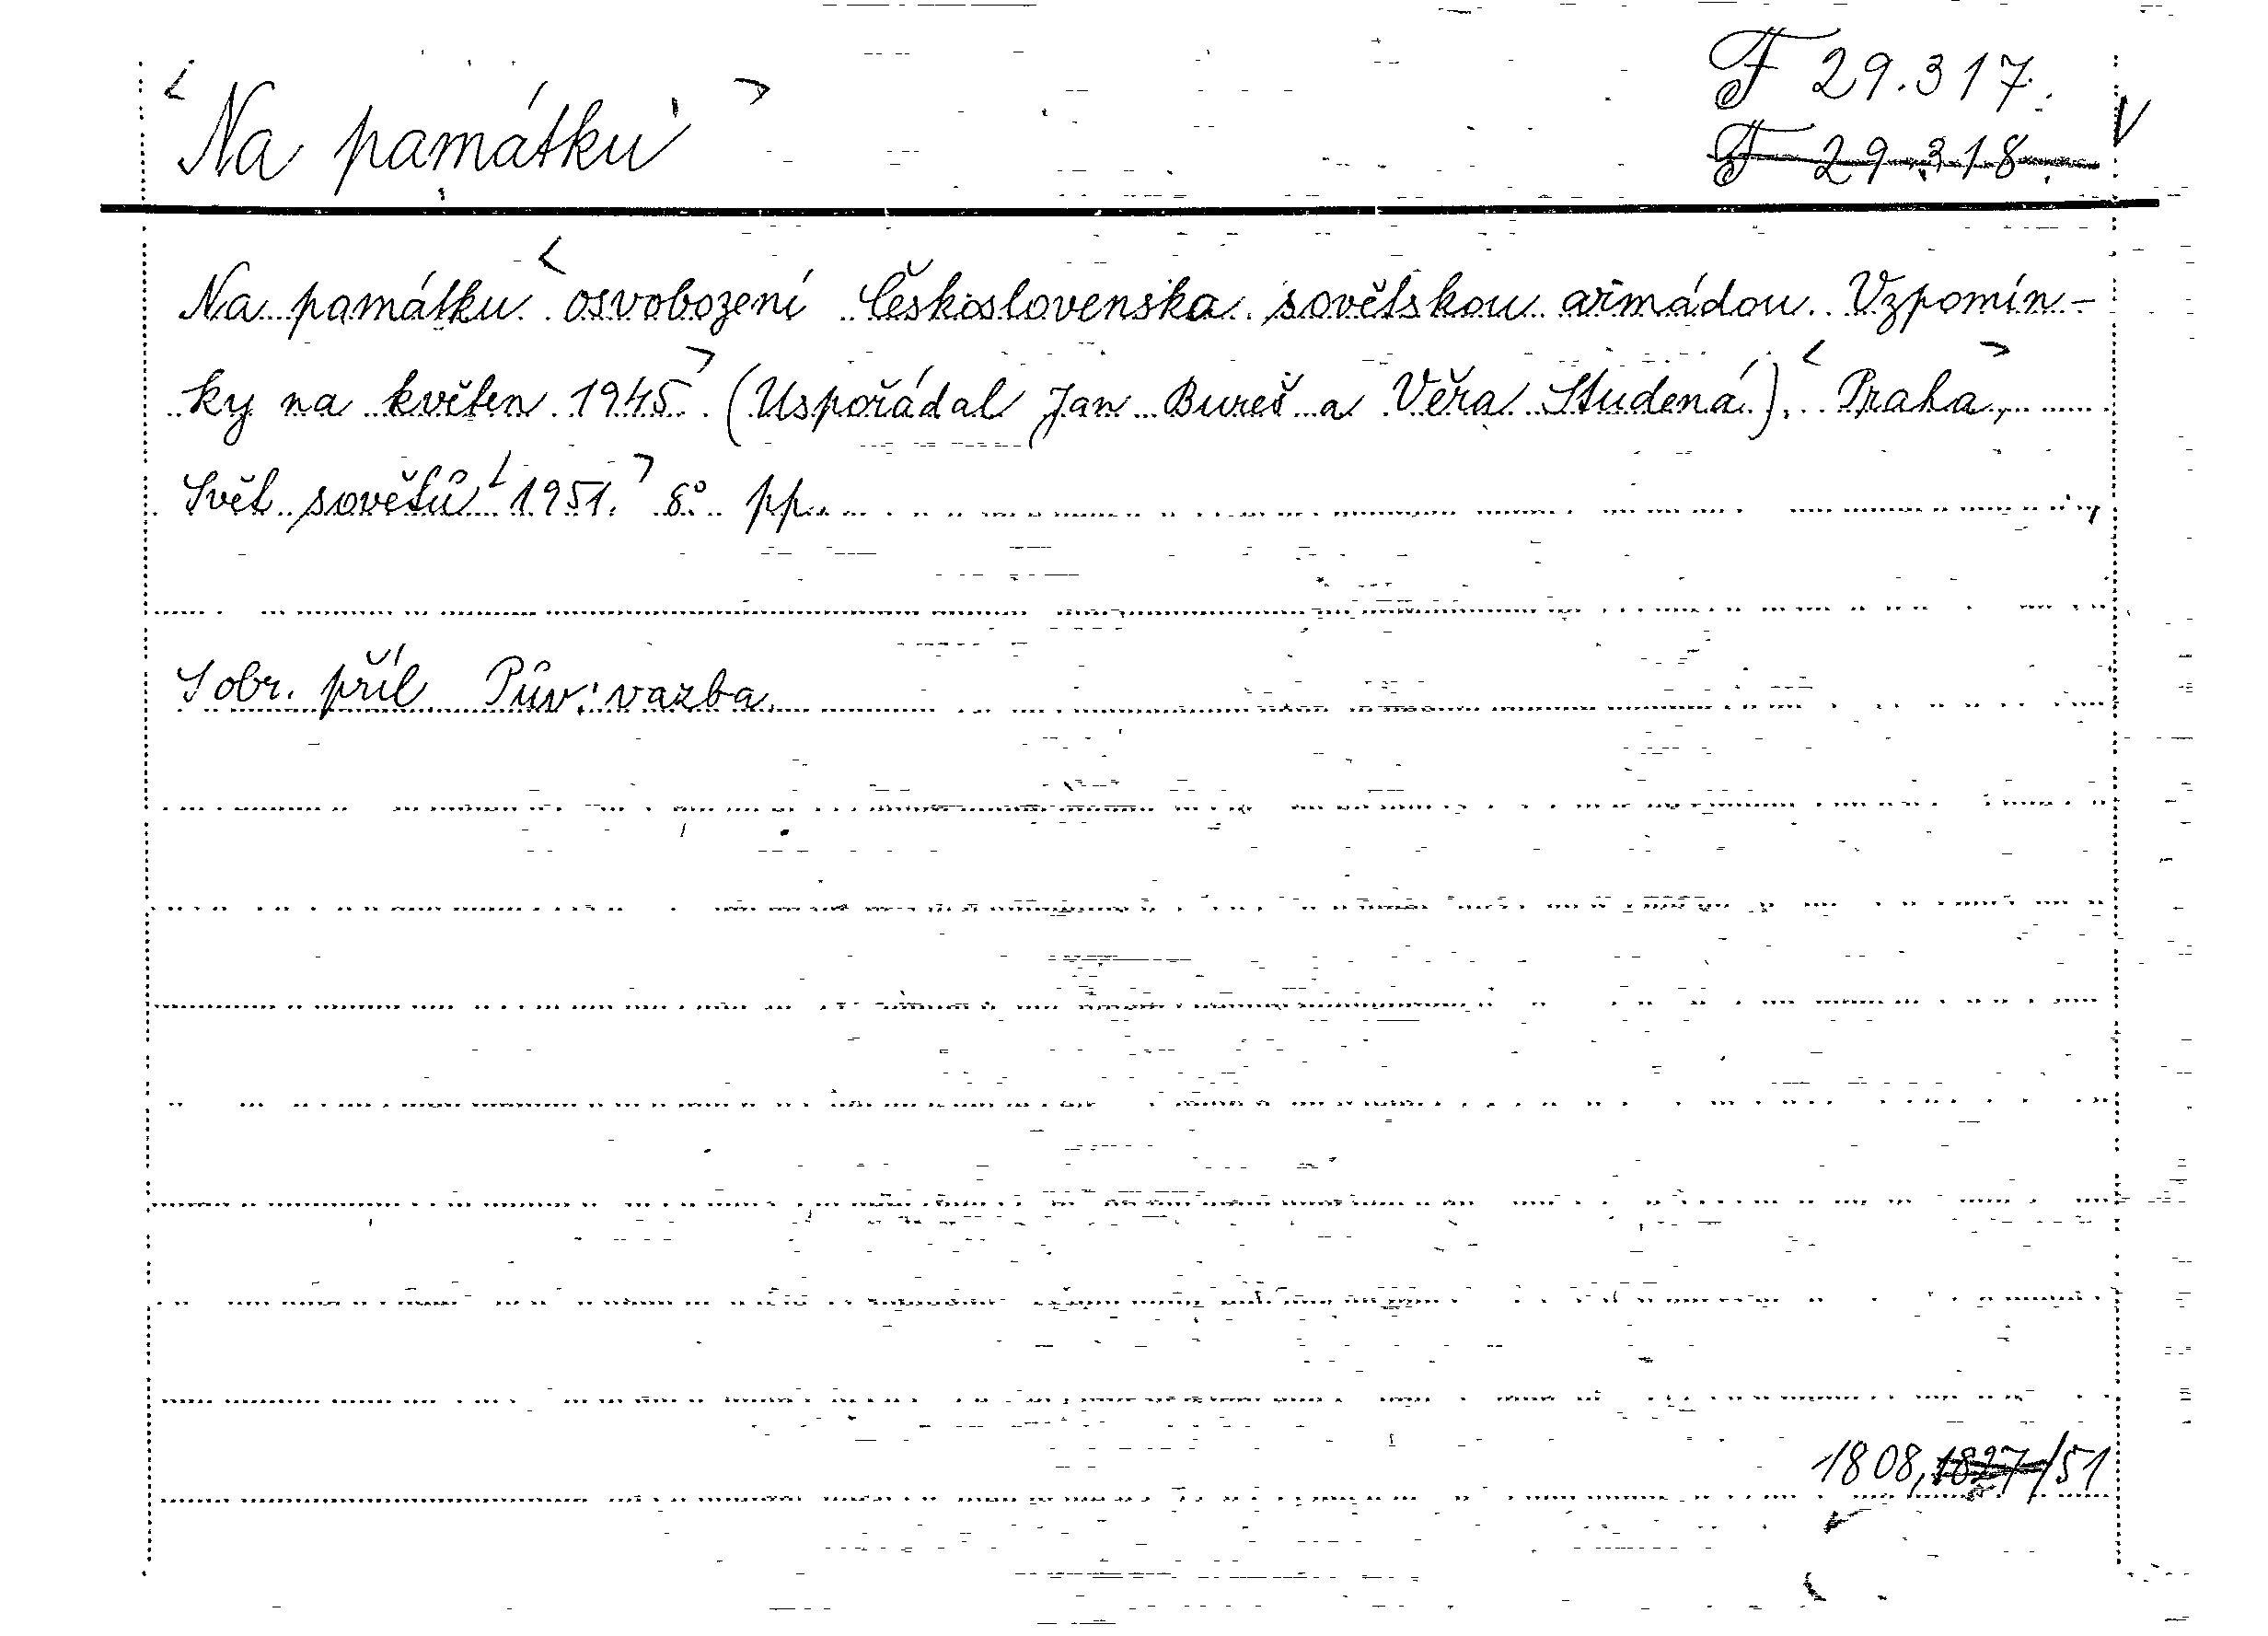 Na památku
F 29.317.
F 29.318
Na památku osvobození Československa sovětskou armádou. Vzpomín-
ky na květen 1945. (Uspořádal Jan Bureš a Věra Studená). Praha,
Svět sovětů 1951. 8° pp.
S obr. příl. Pův. vazba.
1808, 1827/51